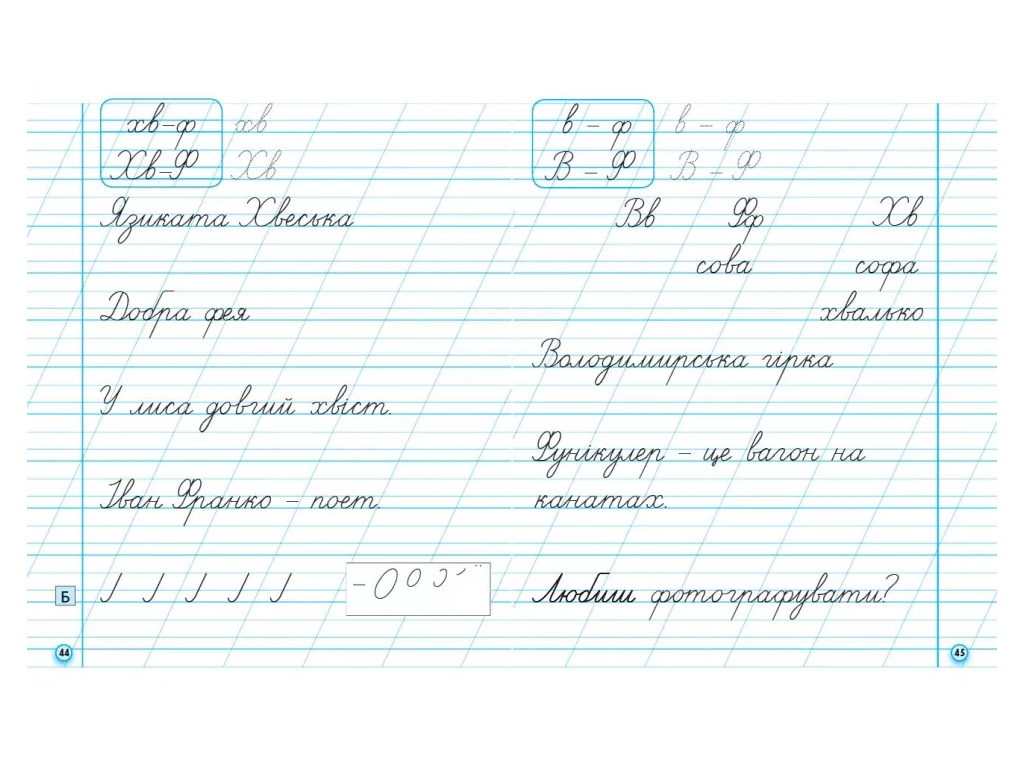 хв–ф хв
Хв–Ф Хв
Язиката Хвеська
Добра фея
У лиса довгий хвіст.
Іван Франко – поет.
Б
44
в – ф в – ф
В – Ф В – Ф
Вв Фф Хв
сова софа
хвалько
Володимирська гірка
Фунікулер – це вагон на
канатах.
Любиш фотографувати?
45